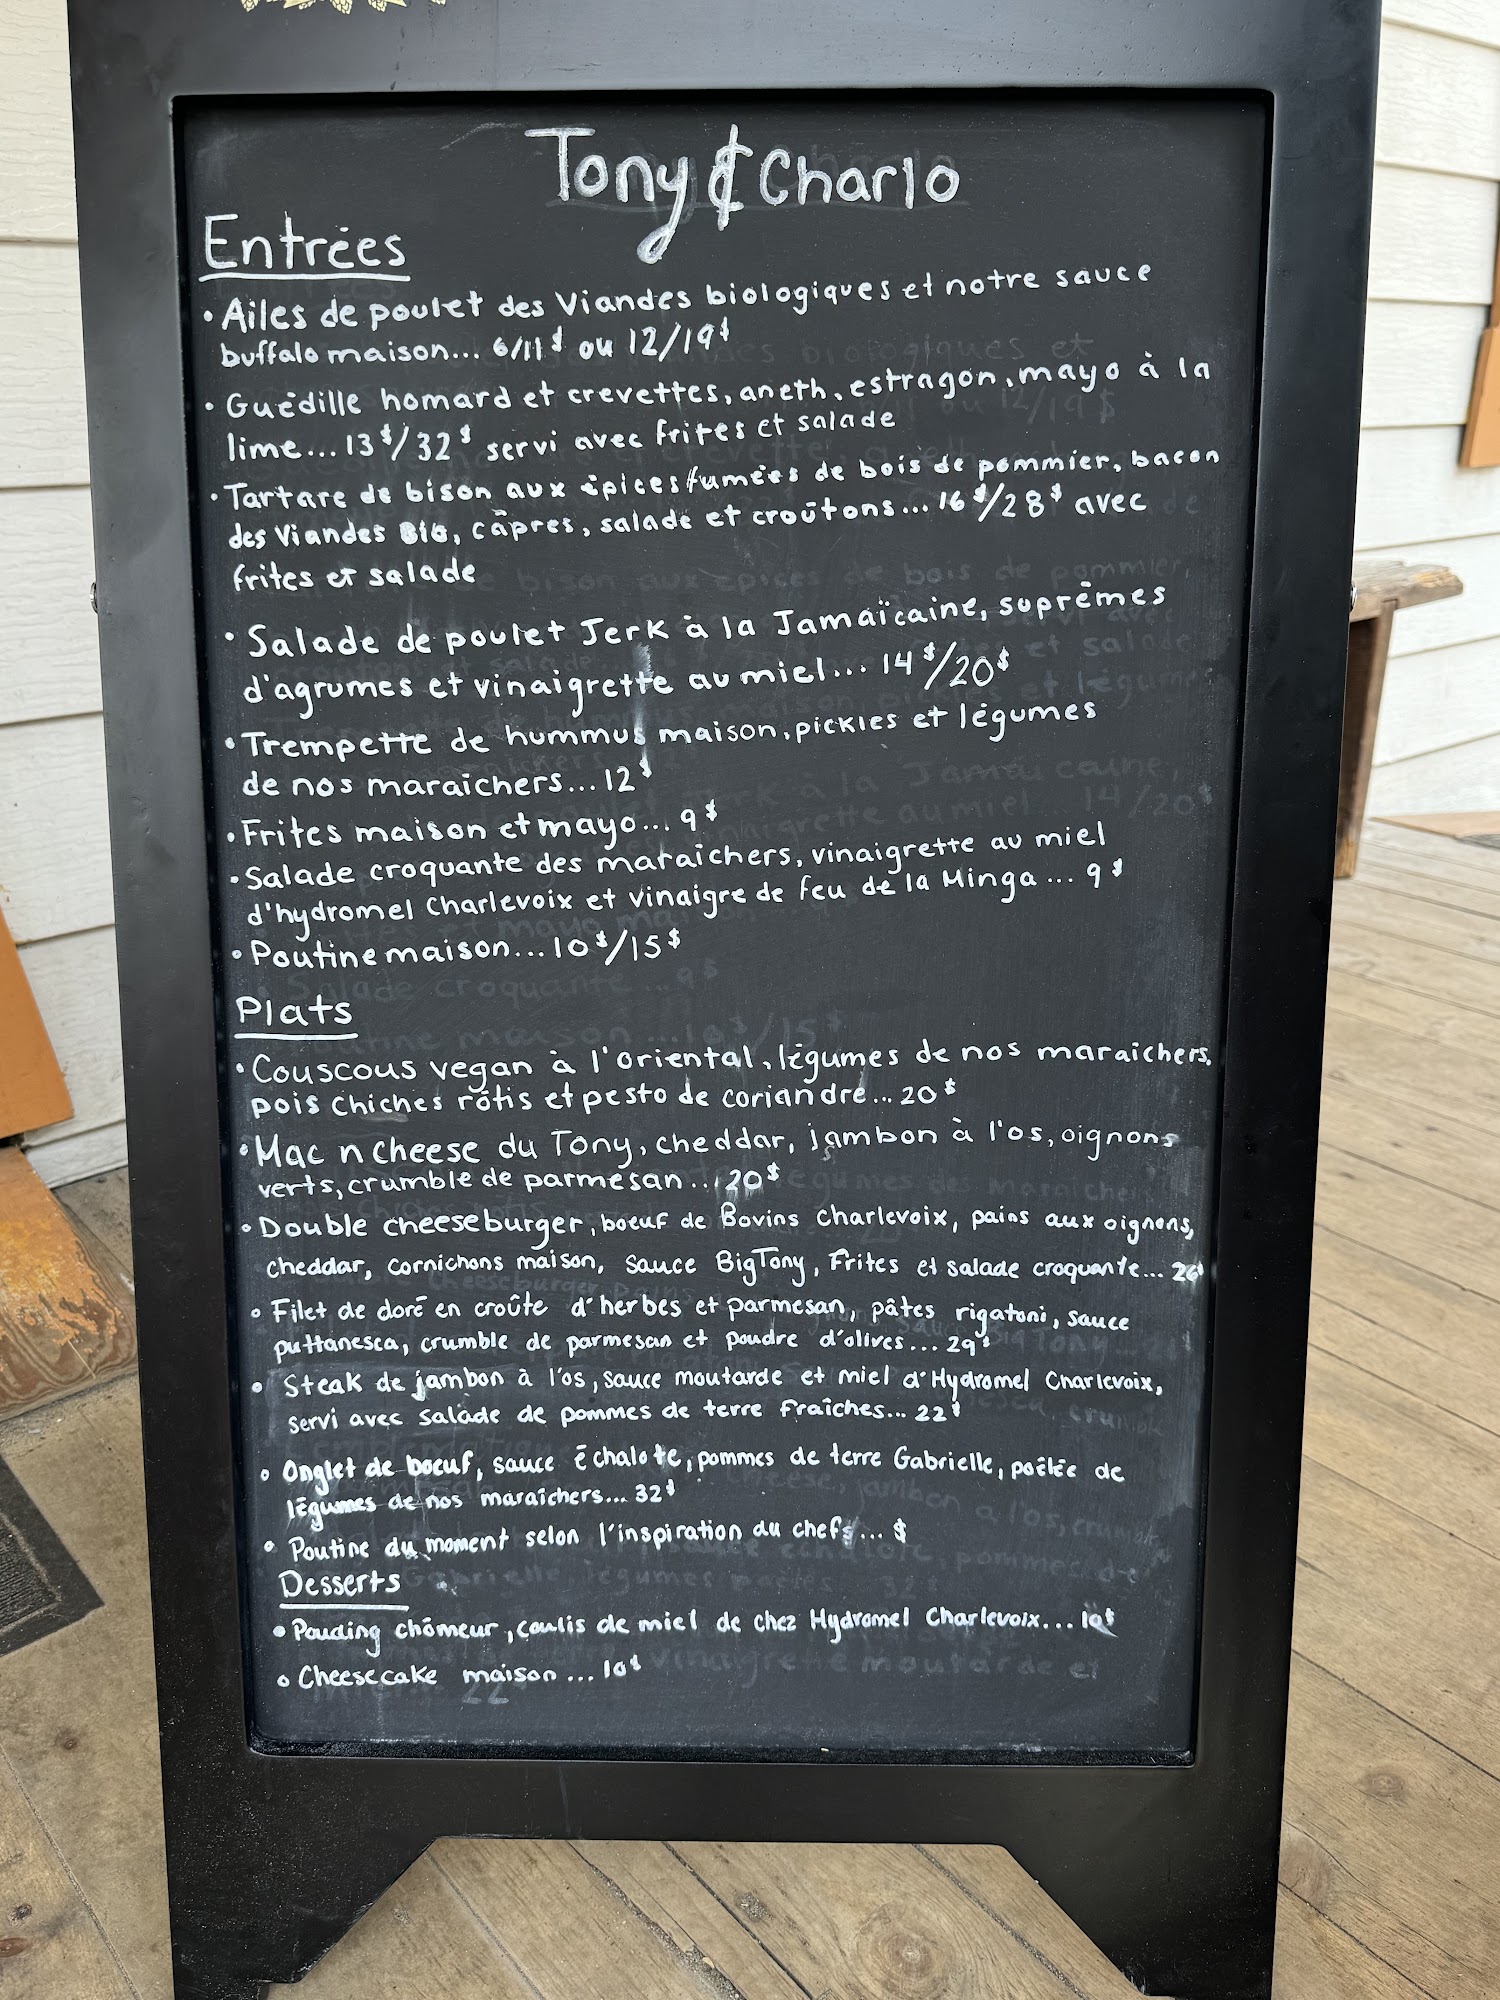 Tony & Charlo
Entrées
• Ailes de poulet des Viandes biologiques et notre sauce
buffalo maison... 6/11$ ou 12/19$
• Guédille homard et crevettes, aneth, estragon, mayo à la
lime... 13$/32$ servi avec frites et salade
• Tartare de bison aux épices fumées de bois de pommier, bacon
des Viandes BIO, câpres, salade et croûtons... 16$/28$ avec
frites et salade
• Salade de poulet Jerk à la Jamaïcaine, suprêmes
d'agrumes et vinaigrette au miel... 14$/20$
• Trempette de hummus maison, pickles et légumes
de nos maraîchers... 12$
• Frites maison et mayo... 9$
• Salade croquante des maraîchers, vinaigrette au miel
d'hydromel Charlevoix et vinaigre de feu de la Minga... 9$
• Poutine maison... 10$/15$
Plats
• Couscous vegan à l'oriental, légumes de nos maraîchers,
pois chiches rôtis et pesto de coriandre... 20$
• Mac n cheese du Tony, cheddar, jambon à l'os, oignons
verts, crumble de parmesan... 20$
• Double cheeseburger, boeuf de Bovins Charlevoix, pains aux oignons,
cheddar, cornichons maison, sauce BigTony, Frites et salade croquante... 26$
• Filet de doré en croûte d'herbes et parmesan, pâtes rigatoni, sauce
puttanesca, crumble de parmesan et poudre d'olives... 29$
• Steak de jambon à l'os, sauce moutarde et miel d'Hydromel Charlevoix,
servi avec salade de pommes de terre fraîches... 22$
• Onglet de boeuf, sauce échalote, pommes de terre Gabrielle, poêlée de
légumes de nos maraîchers... 32$
• Poutine du moment selon l'inspiration du chefs... $
Desserts
• Pouding chômeur, coulis de miel de chez Hydromel Charlevoix... 10$
• Cheesecake maison... 10$